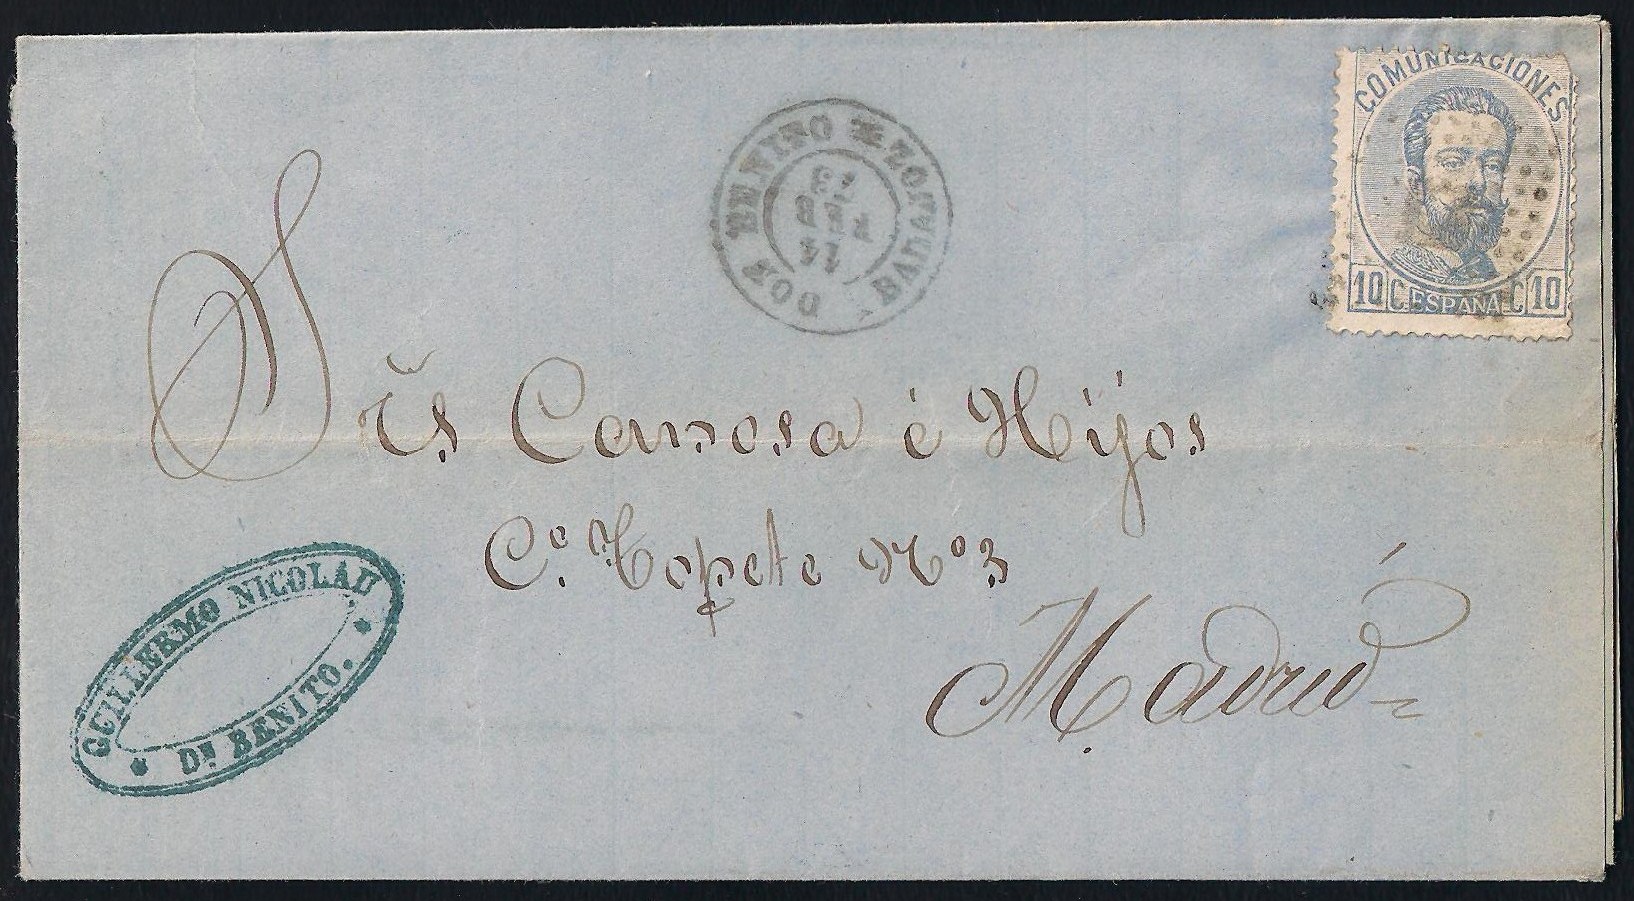 COMUNICACIONES
10 C. ESPAÑA C 10
DON BENITO
BADAJOZ
FEB
73
Srẽs Canosa é Hijos
C.e Topete No 3
Madrid
GUILLERMO NICOLAU
Dn. BENITO.